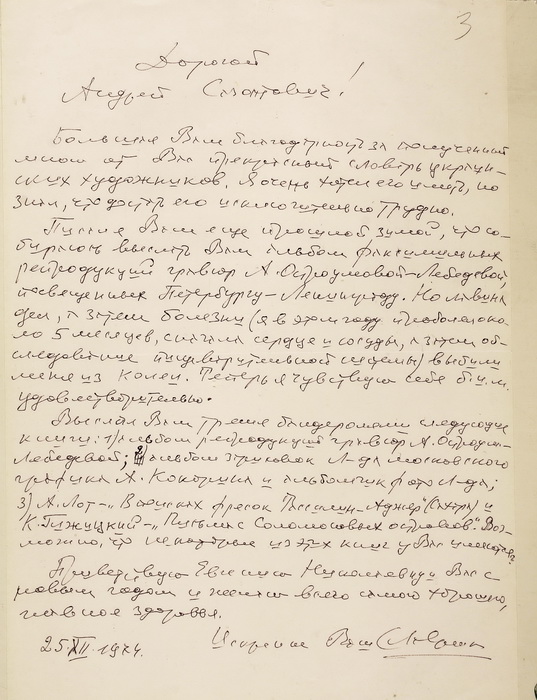 3
Дорогой
Андрей !
Большая Вам благодарность за полученный
мною от Вас прекрасный словарь украин-
ских художников. Я очень хотел его иметь, но
знал, что достать его исключительно трудно.
Писал я Вам еще прошлой зимой, что со-
бираюсь выслать Вам альбом факсимильных
репродукций гравюр А. Остроумовой-Лебедевой,
посвещенных Петербургу-Ленинграду. Но лавина
дел, а затем болезни (я в этом году проболел око-
ло 5 месяцев, сначала сердце и сосуды, а затем об-
следование пищеварительной системы) выбили
меня из колеи. Теперь я чувствую себя б. и м.
удовлетворительно.
Выслал Вам тремя бандеролями следующие
книги: 1) альбом репродукций гравюр А. Остроум-
Лебедевой; 2) альбом рисовок Л-да московского
графика А. и альбомчик фото Л-да;
3) А. Лот - "В поисках фресок Тассилин-Аджера" (Сахара) и
К. Гижицкий - "Письма с Соломоновых островов". Воз-
можно, что некоторые из этих книг у Вас имеются.
Приветствую Евгению Николаевну и Вас с
новым годом и желаю всего самого хорошего,
главное здоровья.
25.XII.1974. Искренне Ваш